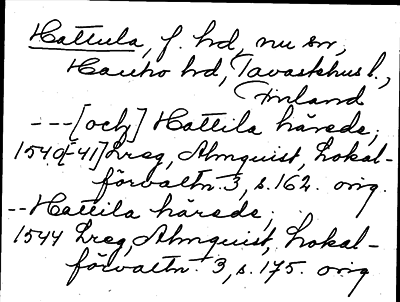 Hattula, f. hd, nu sn,
Hauho hd, Tavastehus l.,
Finland
---[och] Hattila härede,
1540[-41] Lreg, Almquist, Lokal-
förvaltn. 3, s. 162. orig.
--Hattila härede,
1544 Lreg, Almquist, Lokal-
förvaltn. 3, s. 175. orig